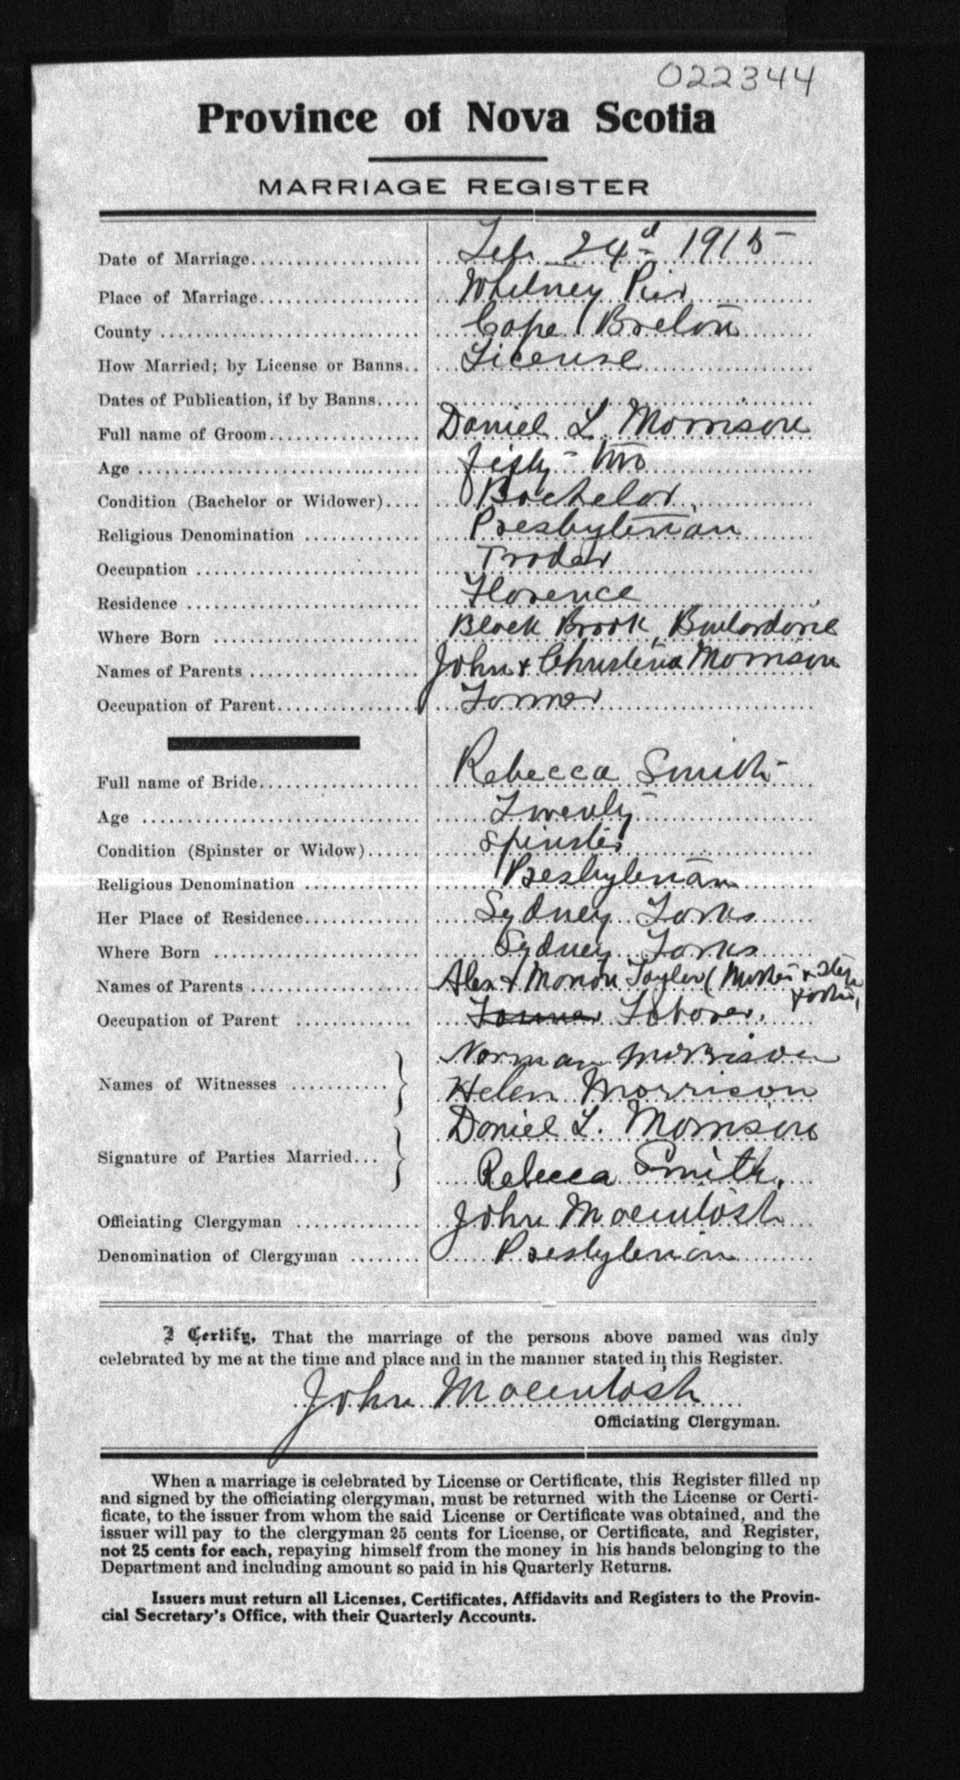 022344
Province of Nova Scotia
MARRIAGE REGISTER
Date of Marriage Feb 24d 1915
Place of Marriage Whitney Pier
County Cape Breton
How Married; by License or Banns License
Dates of Publication, if by Banns
Full name of Groom Daniel L Morrison
Age fifty-two
Condition (Bachelor or Widower) Bachelor
Religious Denomination Presbyterian
Occupation Trader
Residence Florence
Where Born Black Brook, Boulardarie
Names of Parents John & Christina Morrison
Occupation of Parent Farmer
Full name of Bride Rebecca Smith
Age Twenty
Condition (Spinster or Widow) Spinster
Religious Denomination Presbyterian
Her Place of Residence Sydney Forks
Where Born Sydney Forks
Names of Parents Alex & Marion Taylor (Mother & Step
father)
Occupation of Parent Farmer Laborer.
Names of Witnesses Norman Morrison
Helen Morrison
Signature of Parties Married Daniel L. Morrison
Rebecca Smith.
Officiating Clergyman John Macintosh
Denomination of Clergyman Presbyterian
I Certify, That the marriage of the persons above named was duly
celebrated by me at the time and place and in the manner stated in this Register.
John Macintosh
Officiating Clergyman.
When a marriage is celebrated by License or Certificate, this Register filled up
and signed by the officiating clergyman, must be returned with the License or Certi-
ficate, to the issuer from whom the said License or Certificate was obtained, and the
issuer will pay to the clergyman 25 cents for License, or Certificate, and Register,
not 25 cents for each, repaying himself from the money in his hands belonging to the
Department and including amount so paid in his Quarterly Returns.
Issuers must return all Licenses, Certificates, Affidavits and Registers to the Provin-
cial Secretary's Office, with their Quarterly Accounts.